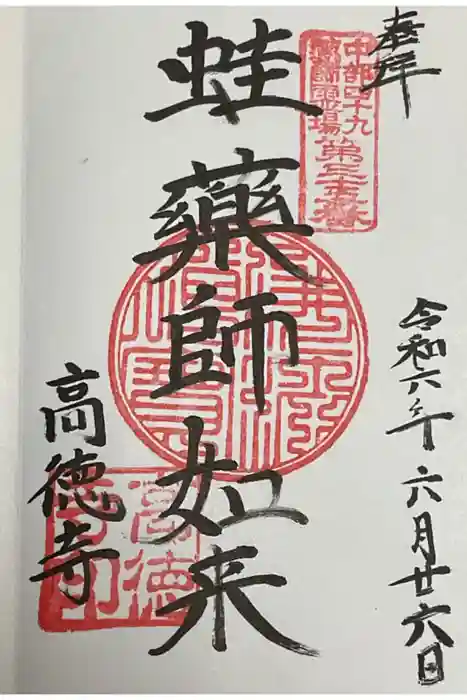 奉拝
中部四十九
薬師霊場
令和六年六月廿六日
蛙藥師如来
高徳寺
高徳
寺印